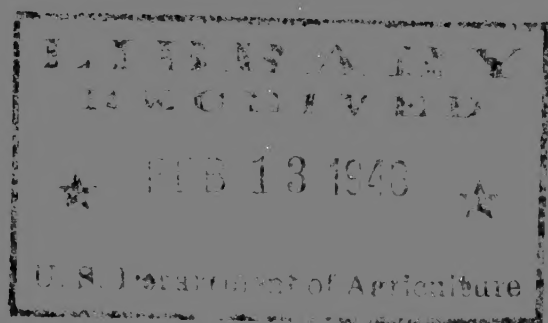 LIBRARY
RECEIVED
★ FEB 13 1940 ★
U. S. Department of Agriculture